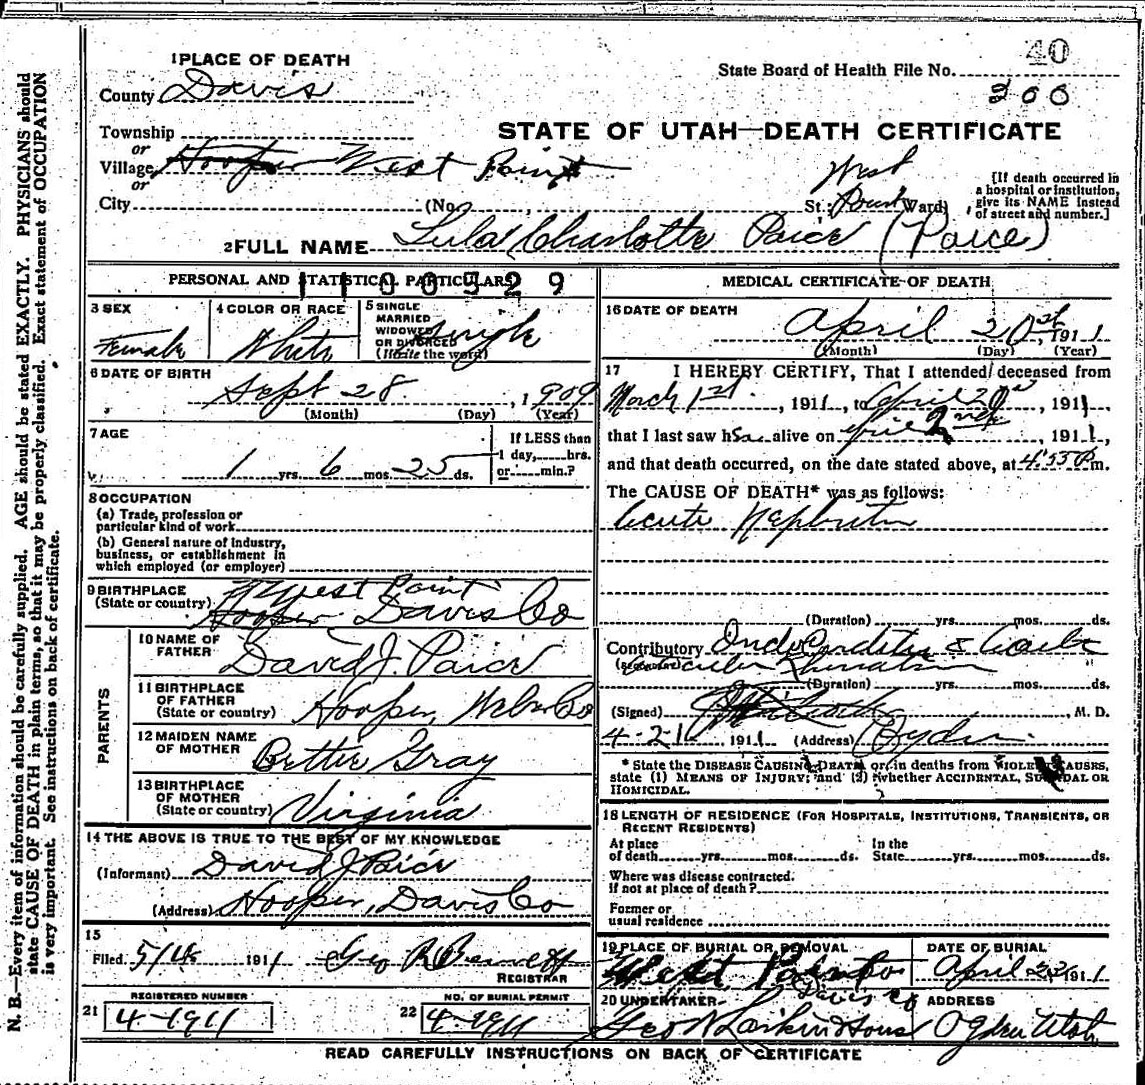 40
1 PLACE OF DEATH
State Board of Health File No.
County Davis
200
Township
STATE OF UTAH—DEATH CERTIFICATE
or
Village Hooper West Point
or
West
City (No. , St.; Point Ward)
[If death occurred in a hospital or institution, give its NAME instead of street and number.]
2 FULL NAME Lula Charlotte Paice (Paice)
PERSONAL AND STATISTICAL PARTICULARS
1100529
3 SEX
Female
4 COLOR OR RACE
White
5 SINGLE
MARRIED
WIDOWED
OR DIVORCED
(Write the word)
Single
6 DATE OF BIRTH
Sept 28, 1909
(Month) (Day) (Year)
7 AGE
1 yrs. 6 mos. 25 ds.
If LESS than
1 day, hrs.
or min.?
8 OCCUPATION
(a) Trade, profession or
particular kind of work
(b) General nature of industry,
business, or establishment in
which employed (or employer)
9 BIRTHPLACE
(State or country)
West Point
Hooper Davis Co
PARENTS
10 NAME OF
FATHER
David J. Paice
11 BIRTHPLACE
OF FATHER
(State or country)
Hooper, Weber Co
12 MAIDEN NAME
OF MOTHER
Bettie Gray
13 BIRTHPLACE
OF MOTHER
(State or country)
Virginia
14 THE ABOVE IS TRUE TO THE BEST OF MY KNOWLEDGE
(Informant) David J Paice
(Address) Hooper, Davis Co
15
Filed 5/18 1911 Geo
REGISTRAR
REGISTERED NUMBER
21 4-1911
NO. OF BURIAL PERMIT
22 4-1911
MEDICAL CERTIFICATE OF DEATH
16 DATE OF DEATH
April 20th, 1911
(Month) (Day) (Year)
17 I HEREBY CERTIFY, That I attended deceased from
March 1st, 1911, to April 20, 1911,
that I last saw h alive on April 2nd, 1911,
and that death occurred, on the date stated above, at 4:55 P m.
The CAUSE OF DEATH* was as follows:
Acute Nephritis
(Duration) yrs. mos. ds.
Contributory Endocarditis & Acute
(SECONDARY) Rheumatism
(Duration) yrs. mos. ds.
(Signed) , M. D.
4-21, 1911 (Address) Ogden
* State the DISEASE CAUSING DEATH or, in deaths from VIOLENT CAUSES,
state (1) MEANS OF INJURY; and (2) whether ACCIDENTAL, SUICIDAL OR
HOMICIDAL.
18 LENGTH OF RESIDENCE (FOR HOSPITALS, INSTITUTIONS, TRANSIENTS, OR
RECENT RESIDENTS)
At place
of death yrs. mos. ds.
In the
State yrs. mos. ds.
Where was disease contracted,
if not at place of death?
Former or
usual residence
19 PLACE OF BURIAL OR REMOVAL
West Point
Davis Co
DATE OF BURIAL
April 22, 1911
20 UNDERTAKER
Geo W Larkin & Sons
ADDRESS
Ogden Utah
READ CAREFULLY INSTRUCTIONS ON BACK OF CERTIFICATE
N. B.—Every item of information should be carefully supplied. AGE should be stated EXACTLY. PHYSICIANS should
state CAUSE OF DEATH in plain terms, so that it may be properly classified. Exact statement of OCCUPATION
is very important. See instructions on back of certificate.